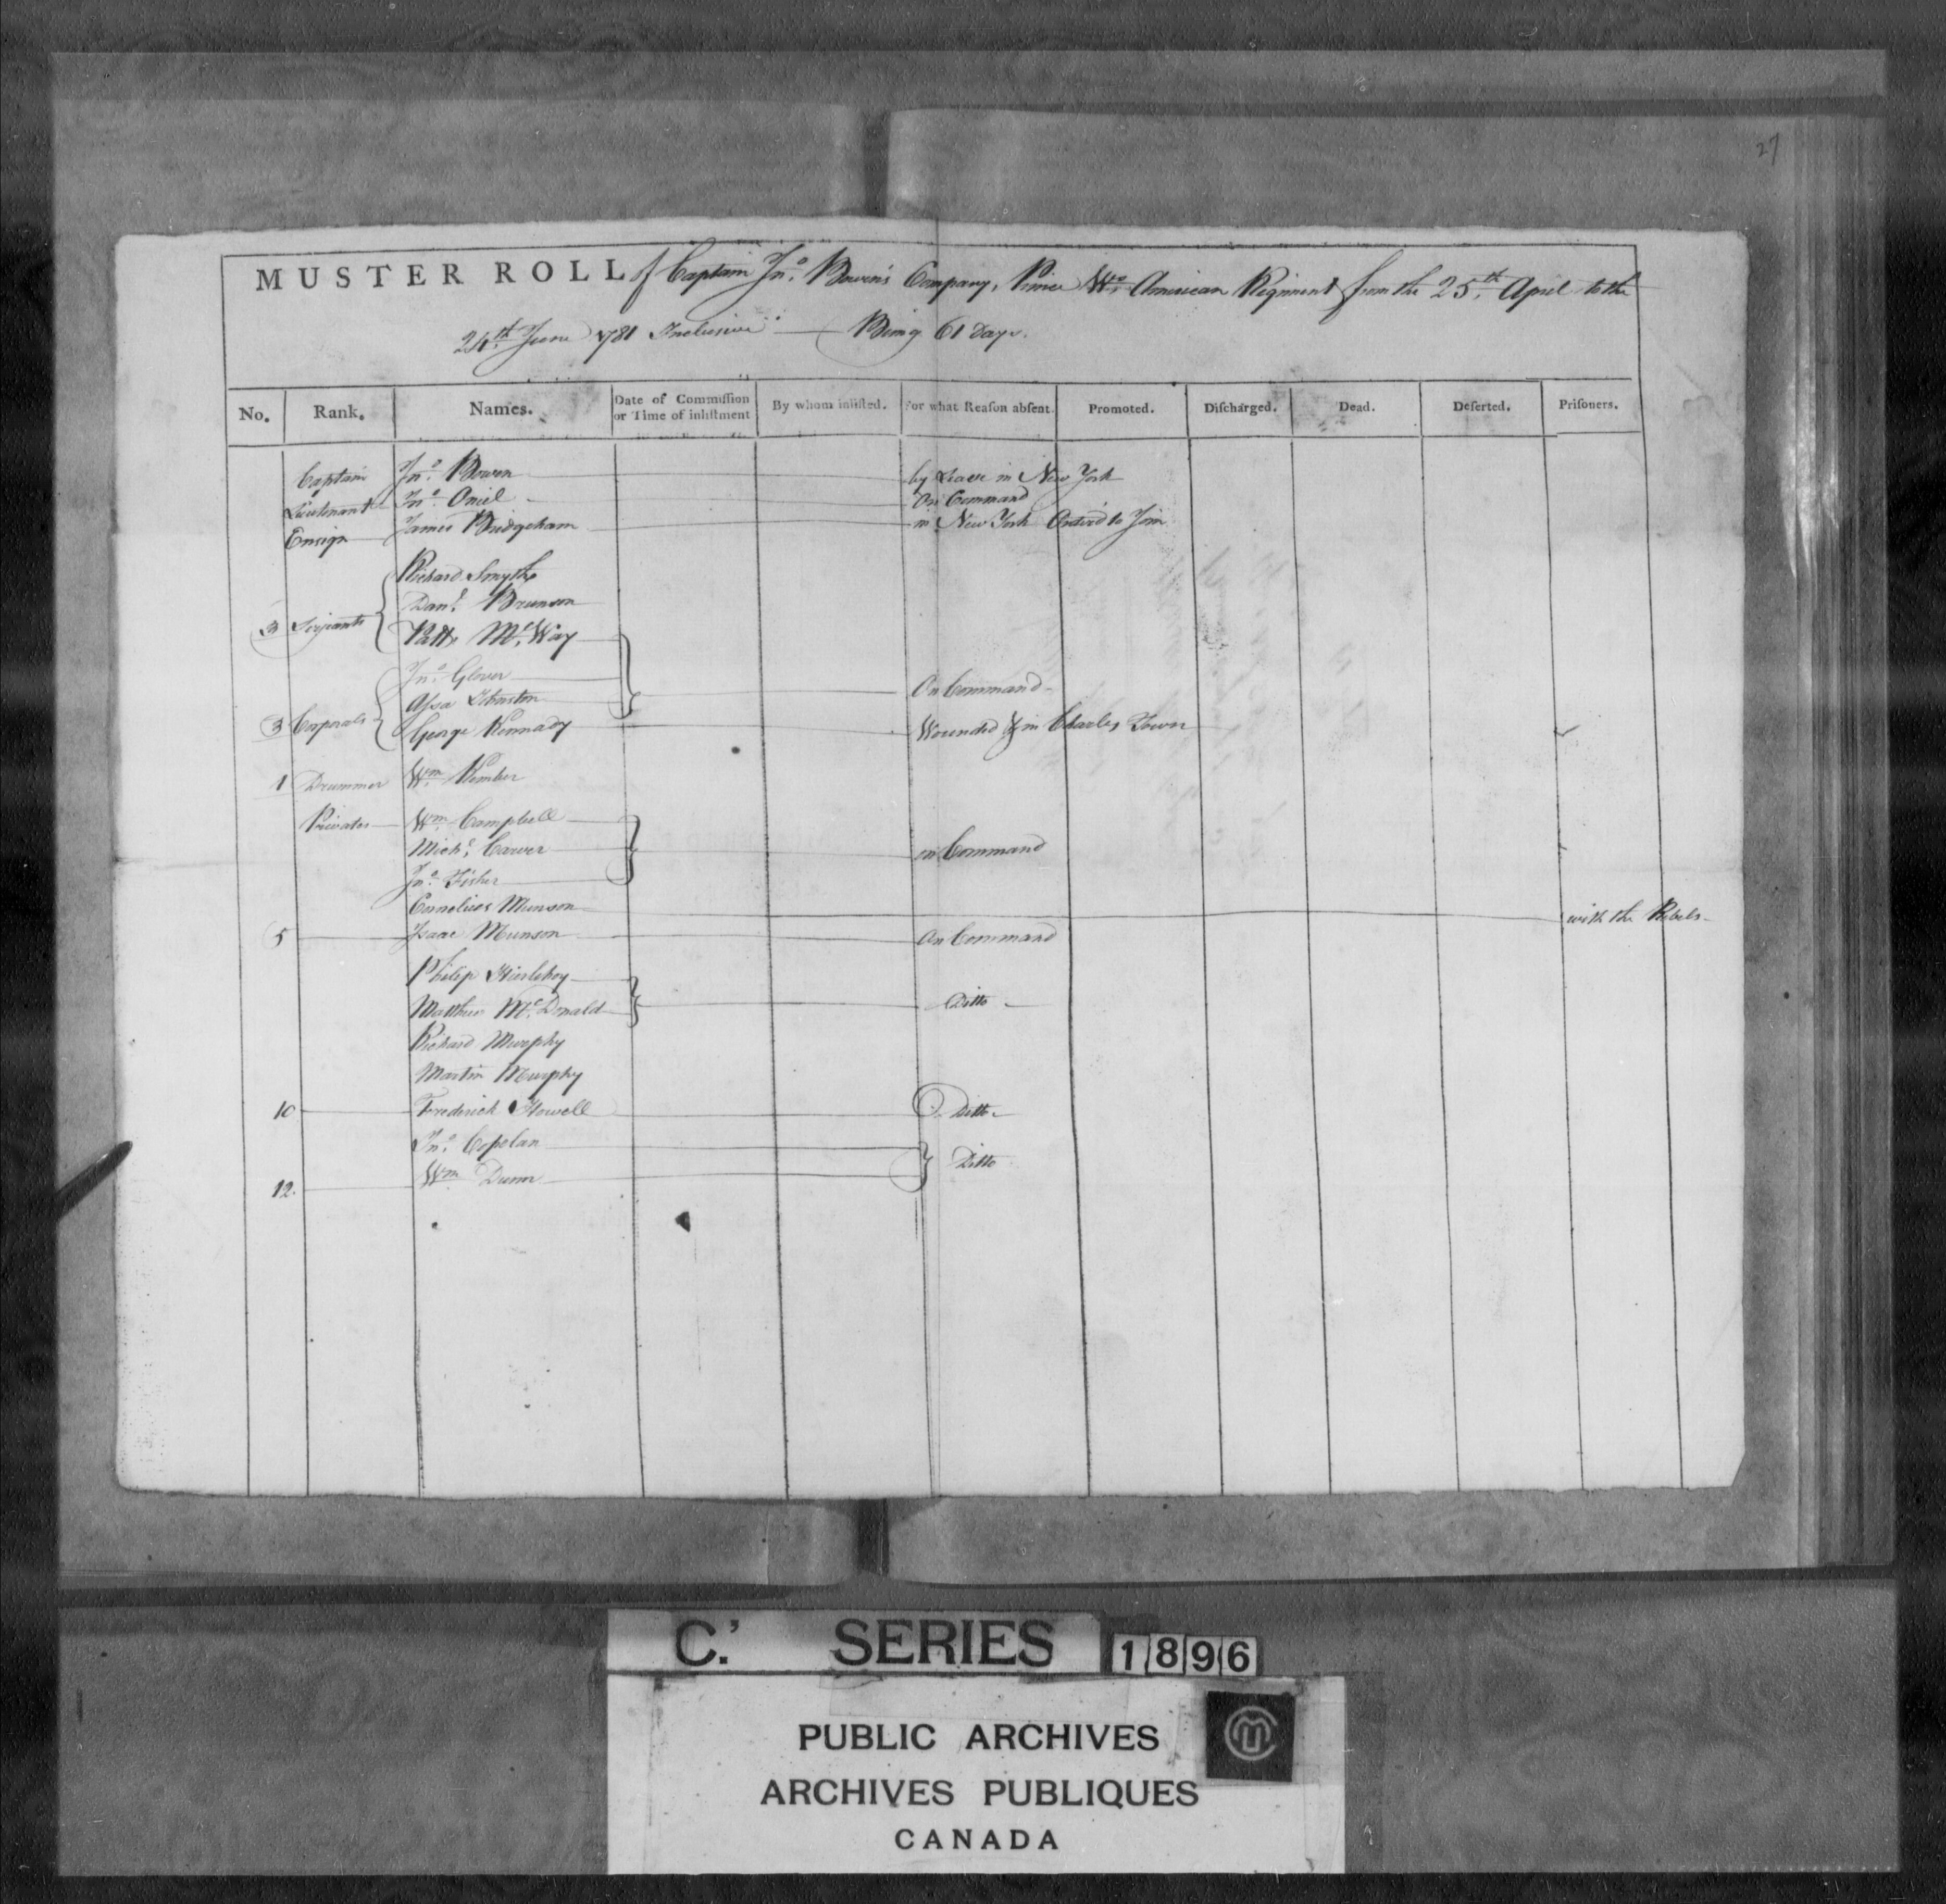 27
MUSTER ROLL of Captain Jnº. Bowen's Company, Prince Wms. American Regiment from the 25th. April to the
24th. June 1781 Inclusive — Being 61 Days.
No. Rank. Names. Date of Commiſſion or Time of inliſtment By whom inliſted. For what Reaſon abſent. Promoted. Diſcharged. Dead. Deſerted. Priſoners.
Captain Jnº. Bowen by Leave in New York
Lieutenant Jnº. Oniel On Command
Ensign James Bridgeham in New York Orderd to Join
Richard Smyth
Danl. Brunson
3 Serjeants Patk. Mc. Way
Jnº. Glover
Assa Johnston On Command
3 Corporals George Kennady Wounded & in Charles Town
1 Drummer Wm. Kember
Privates Wm. Campbell
Michl. Carver on Command
Jnº. Fisher
Cornelius Munson with the Rebels
5 Isaac Munson On Command
Philip
Matthew Mc. Donald Ditto
Richard Murphy
Martin Murphy
10 Frederick Howell Ditto
Jnº. Copelan
12. Wm. Dunn Ditto
C.' SERIES 1896
PUBLIC ARCHIVES
ARCHIVES PUBLIQUES
CANADA